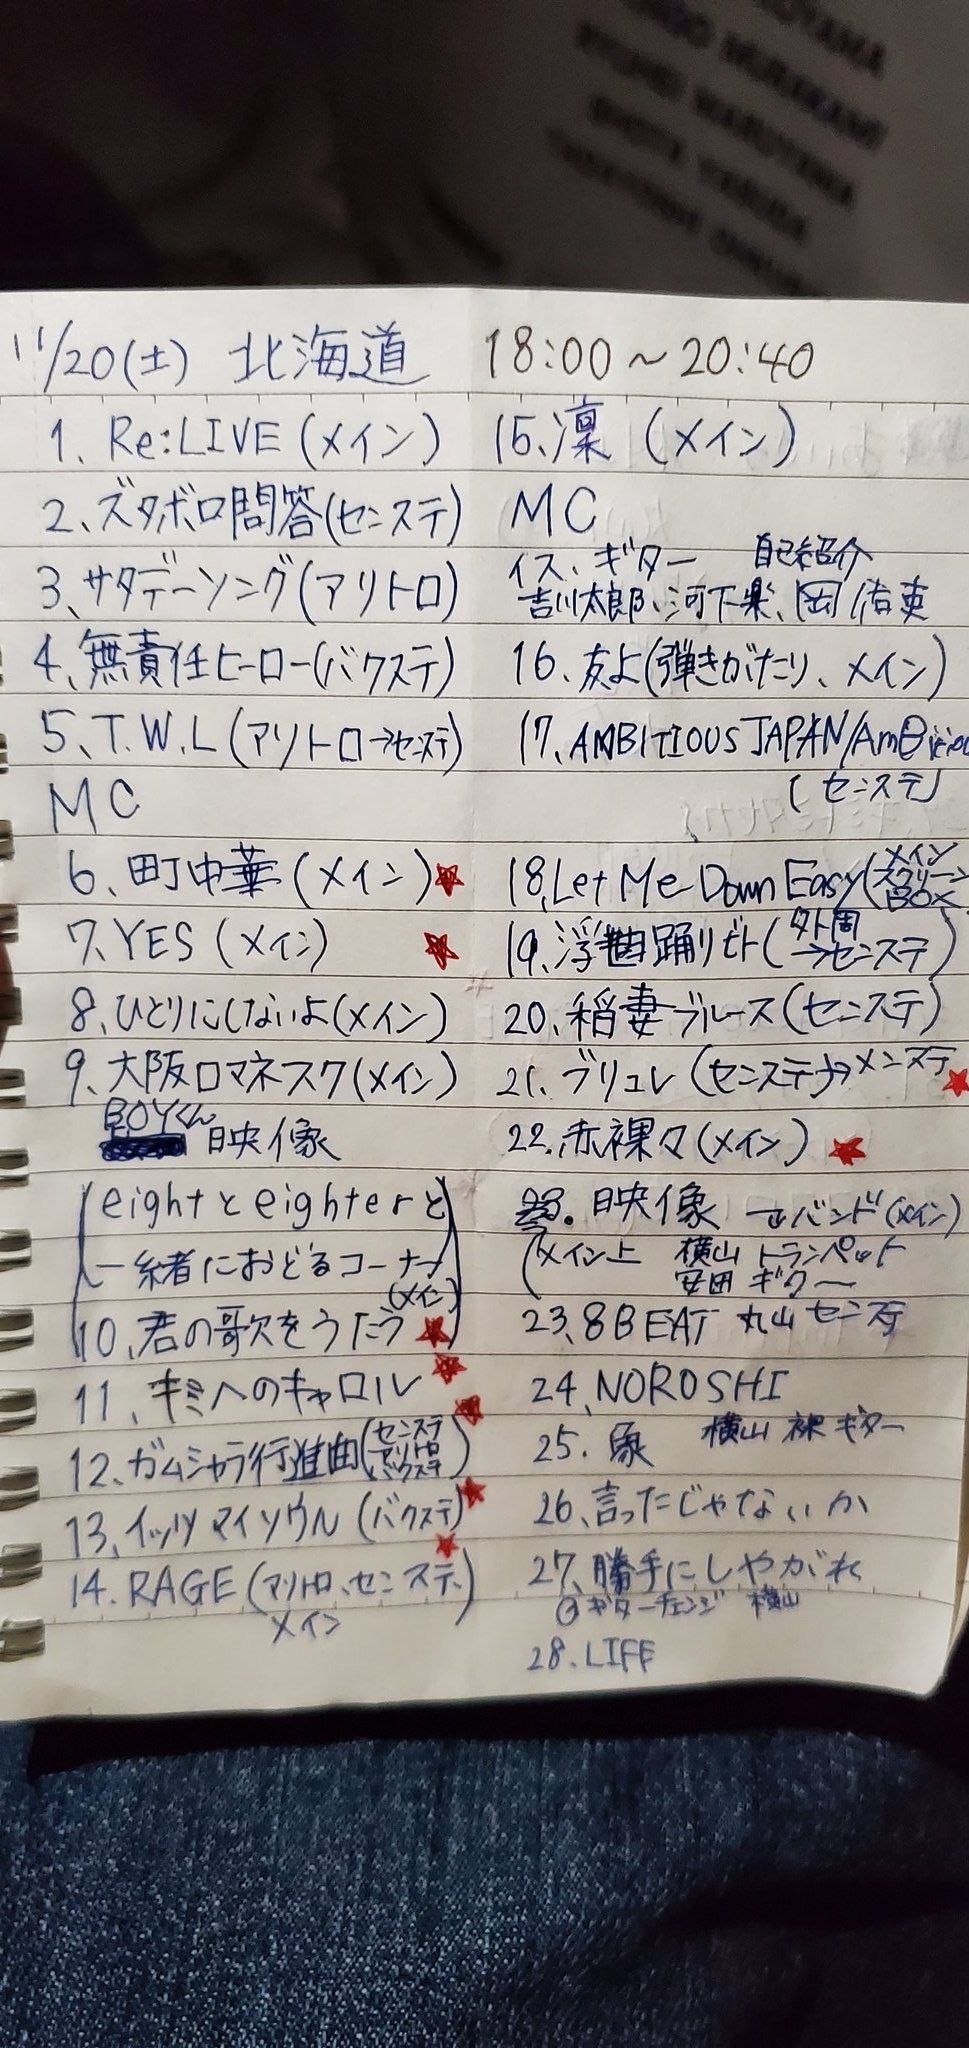 11/20(土) 北海道 18:00～20:40
1、Re:LIVE(メイン)
2、ズタボロ問答(センステ)
3、サタデーソング(アリトロ)
4、無責任ヒーロー(バクステ)
5、T.W.L(アリトロ→センステ)
MC
6、町中華(メイン)
7、YES(メイン)
8、ひとりにしないよ(メイン)
9、大阪ロマネスク(メイン)
BOYくん
映像
(eightとeighterと
一緒におどるコーナー
(メイン)
10、君の歌をうたう)
11、キミへのキャロル
12、ガムシャラ行進曲(センステ
アリトロ
バクステ)
13、イッツマイソウル(バクステ)
14.RAGE(アリトロ、センステ、
メイン
15、凛(メイン)
MC
イス、ギター 自己紹介
吉川太郎、河下楽、岡佑吏
16、友よ(弾きがたり、メイン)
17、AMBITIOUS JAPAN/
(センステ)
18、Let Me Down Easy(メイン
スクリーン
BOX
19、浮世踊りビト(外周
→センステ)
20、稲妻ブルース(センステ)
21、ブリュレ(センステ→メンステ
22.赤裸々(メイン)
映像 →バンド(メイン)
(メイン上 横山 トランペット
安田 ギター
23、8BEAT 丸山 センステ
24、NOROSHI
25.象 横山 裸ギター
26、言ったじゃないか
27、勝手にしやがれ
ギターチェンジ 横山
28.LIFE